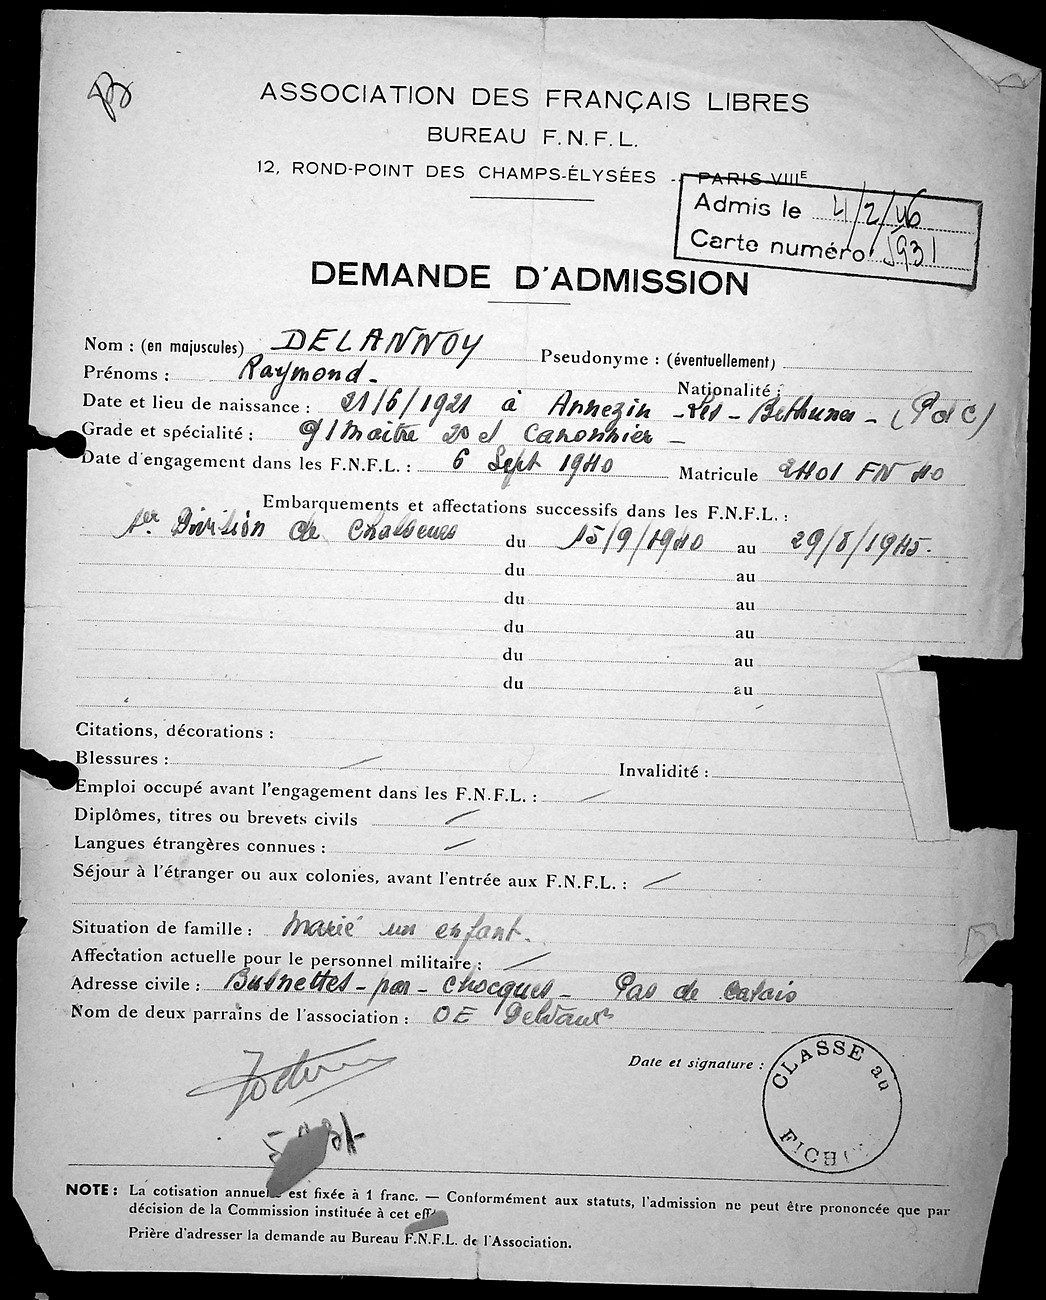 ASSOCIATION DES FRANÇAIS LIBRES
BUREAU F.N.F.L.
12, ROND-POINT DES CHAMPS-ÉLYSÉES - PARIS VIIIE
Admis le 4/2/46
Carte numéro 5931
DEMANDE D'ADMISSION
Nom : (en majuscules) DELANNOY Pseudonyme : (éventuellement)
Prénoms : Raymond - Nationalité :
Date et lieu de naissance : 21/6/1921 à Annezin - les - Bethunes - (P d C)
Grade et spécialité : q/maitre 2e cl canonnier -
Date d'engagement dans les F.N.F.L. : 6 Sept 1940 Matricule 2401 FN 40
Embarquements et affectations successifs dans les F.N.F.L. :
1er Division de Chasseurs du 15/9/1940 au 29/8/1945.
du au
du au
du au
du au
du au
Citations, décorations :
Blessures : Invalidité :
Emploi occupé avant l'engagement dans les F.N.F.L. :
Diplômes, titres ou brevets civils
Langues étrangères connues :
Séjour à l'étranger ou aux colonies, avant l'entrée aux F.N.F.L. :
Situation de famille : Marié un enfant.
Affectation actuelle pour le personnel militaire :
Adresse civile : Busnettes - par - Chocques - Pas de Calais
Nom de deux parrains de l'association : OE
Date et signature :
CLASSE au
FICHI
NOTE : La cotisation annuelle est fixée à 1 franc. — Conformément aux statuts, l'admission ne peut être prononcée que par
décision de la Commission instituée à cet eff
Prière d'adresser la demande au Bureau F.N.F.L. de l'Association.